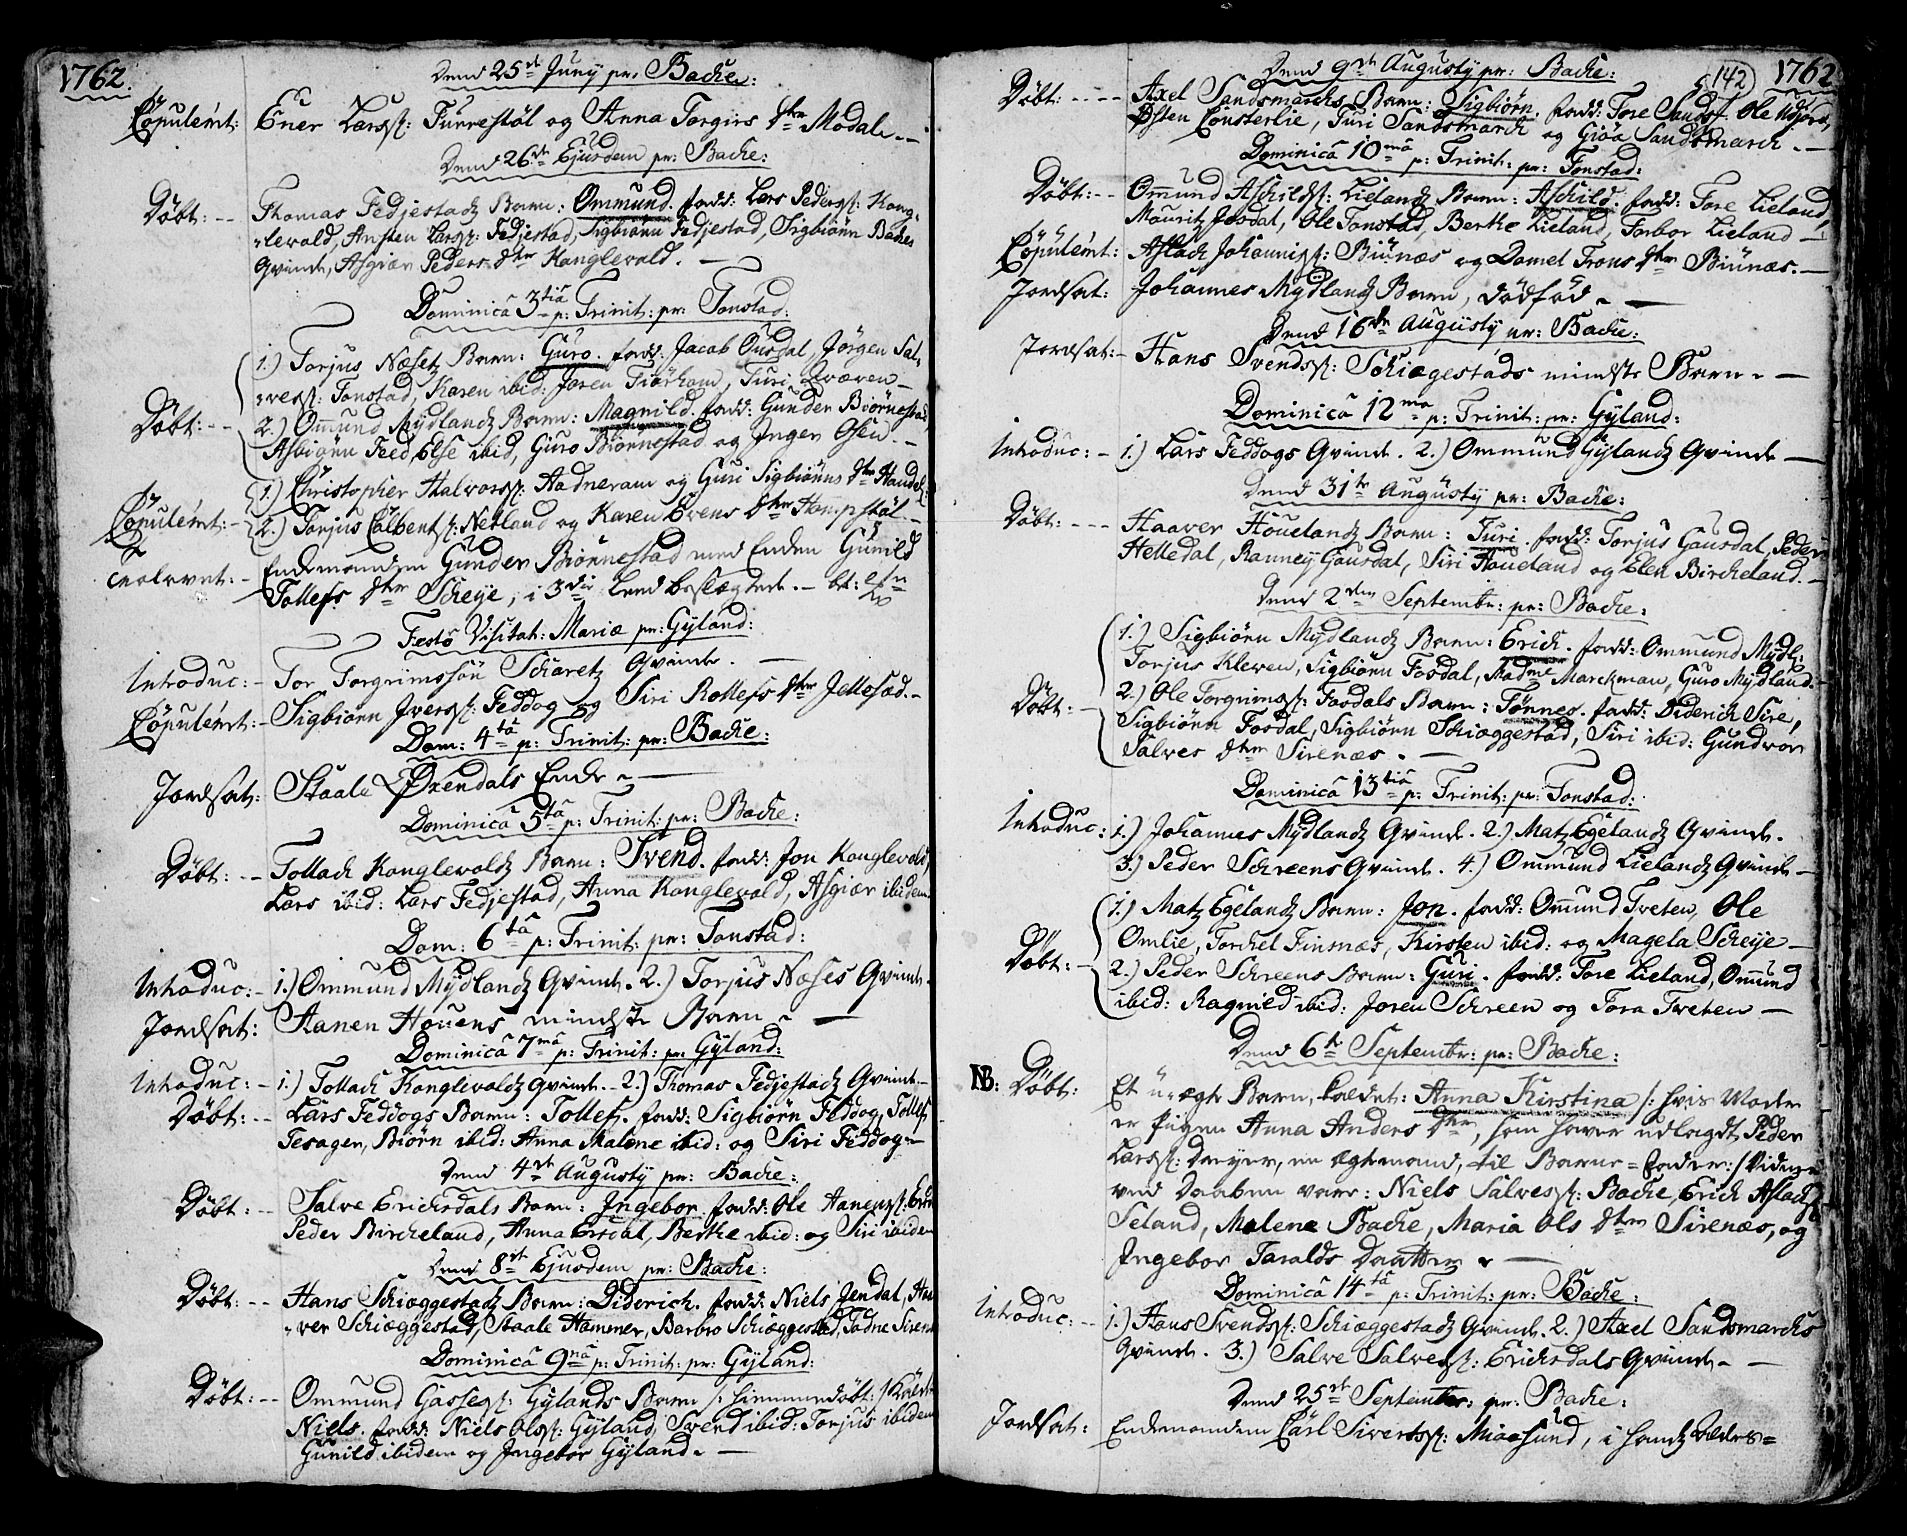 1762.
Dend 25de Juny pr: Bache:
Copulerit: Ener Larss: Furrestøl og Anna Torgirs dtr Modale.
Dend 26de Ejusdem pr: Bache:
Døbt: -- Thomas Fedjestadz Barn: Ommund. fadd: Lars Peders: Kong-
levold, Ansten Larss: Fedjestad, Sigbiørn Fedjestad, Sigbiørn Baches
Qvinde, Asgiær Peders dtr Konglevold. —
Dominica 3tia p: Trinit: pr: Tonstad:
1.) Torjus Næsetz Barn: Guro. fadd: Jacob Ousdal, Jørgen Sal-
vess: Tonstad, Karen ibid: Joren Tiørhom, Turi Qvæven —
Døbt: -- 2.) Ommund Mydlandz Barn: Magnild. fadd: Gunder Biørnestad
Asbiørn Feed, Else ibid, Guro Biørnestad og Inger Osen --
1.) Christopher Halvorss: Aadneram og Guri Sigbiørns dtr Handel:
Copulerit: - 2.) Torjus Colbents: Netland og Karen Evens dtr Hompstøl -
Enkemanden Gunder Biørnestad med Enken Gunild
Tollefs dtr Scheye, i 3die Leed beslægtede. -
Festo Visitat: Mariæ pr: Gyland:
Introduc: - Tor Torgrimssøn Scharetz Qvinde. —
Copulerit: - Sigbiørn Iverss: Feddog og Siri Rollefs dtr Jettesæd. -
Dom: 4ta p: Trinit: pr: Bache:
Jordsat: Staale Øxendals Enke —
Dominica 5ta p: Trinit: pr: Bache:
Døbt: -- Tollach Konglevoldz Barn: Svend. fadd: Jon Konglevold,
Lars ibid: Lars Fedjestad, Anna Konglevold, Asgiær ibidem.
Dom: 6ta p: Trinit: pr: Tonstad:
Introduc: - 1.) Ommund Mydlandz Qvinde. 2.) Torjus Næses Qvinde.
Jordsat: Aanen Houens mindste Barn —
Dominica 7ma p: Trinit: pr: Gyland:
Introduc: - 1.) Tollach Konglevoldz qvinde. - 2.) Thomas Fedjestadz Qvinde -
Døbt: -- Lars Feddogs Barn: Tollef. fadd: Sigbiørn Feddog, Tollef
Tesager, Biørn ibid: Anna Malene ibid: og Siri Feddog -
Dend 4de Augusty pr: Bache:
Døbt: -- Salve Ericksdals Barn: Ingebor. fadd: Ole Aanenss:
Peder Bircheland, Anna Ersdal, Berthe ibid: og Siri ibidem
Dend 8de Ejusdem pr: Bache:
Døbt: -- Hans Schieggestadz Barn: Diderich. fadd: Niels Jendal,
ver Schieggestad, Staale Hammer, Barbro Schieggestad, Tadne Sirenes
Dominica 9na p: Trinit: pr: Gyland:
Døbt: -- Ommund Gasseg: Gylands Barn /: hiemmedøbt: /
Niels. fadd: Niels Olss: Gyland, Svend ibid: Torjus ibidem
Gunild ibidem og Ingebor Gyland. —
142 1762
Dend 9de Augusty pr: Bache:
Døbt: ---- Axel Sandsmarchs Barn: Sigbiørn. fadd: Tore Sands, Ole
Østen Consterlie, Turi Sandsmarch og Giøa Sandsmarch. —
Dominica 10ma p: Trinit: pr: Tonstad:
Døbt: -- Ommund Aschilds: Lielandz Barn: Aschild. fadd: Tore Lieland,
Mauritz Josdal, Ole Tonstad, Berthe Lieland, Torbor Lieland —
Copulerit: Aslach Johanniss: Biunæs og Dorthe Trons dtr Biunæs. —
Jordsat: Johannes Mydlandz Barn, dødfød —
Dend 16de Augusty pr: Bache:
Jordsat: - Hans Svendss: Schiægestads mindste Barn —
Dominica 12ma p: Trinit: pr: Gyland:
Introduc: - 1.) Lars Feddogs Qvinde. 2.) Ommund Gylandz Qvinde —
Dend 31te Augusty pr: Bache:
Døbt: --- Haaver Houelandz Barn: Turi. fadd: Torjus Gausdal, Peder
Helledal, Ranney Gausdal, Siri Houeland og Elen Bircheland. —
Dend 2den Septembr: pr: Bache:
1.) Sigbiørn Mydlandz Barn: Erich. fadd: Ommund Mydl:
Torjus Kleven, Sigbiørn Fosdal, Madme Marckman, Guro Mydland. -
Døbt: - 2.) Ole Torgrimss: Fosdals Barn: Tønnes. fadd: Diderich Sire,
Sigbiørn Fosdal, Sigbiørn Schieggestad, Siri ibid: Gundvor
Salves dtr Sirenæs. —
Dominica 13tia p: Trinit: pr: Tonstad:
Introduc: 1.) Johannes Mydlandz Qvinde. 2.) Matz Egelandz Qvinde.
3.) Peder Schreens Qvinde. 4.) Ommund Lielandz Qvinde -
1.) Matz Egelandz Barn: Jon. fadd: Omund Tveten, Ole
Omlie, Torchel Finsnæs, Kirsten ibid: og Magela Scheye —
Døbt: - 2.) Peder Schreens Barn: Guri. fadd: Tore Lieland, Omund
ibid: Ragnild ibid: Joren Schreen og Tora Tveten —
Dend 6te Septembr: pr: Bache:
NB: Døbt: Et u-ægte Barn, kaldet: Anna Kirstina /: hvis Moder
er Pigen Anna Anders dtr, som haver udlagdt Peder
Larss: Dreyer, en Egtemand, til Barne-fader: / Vidne
ved Daaben vare: Niels Salvess: Bache, Erich Aslachs:
Seland, Malene Bache, Maria Ols dtr Sirenæs, og
Ingebor Taralds Daatter —
Dominica 14ta p: Trinit: pr: Bache:
Introduc: -- 1.) Hans Svendss: Schieggestadz Qvinde. 2.) Axel Sandsmarchs
Qvinde. 3.) Salve Salvess: Ericksdals Qvinde - —
Dend 25de Septembr: pr: Bache:
Jordsat: Enkemanden Carl Sivertss: Mioesund, i hands Alders-